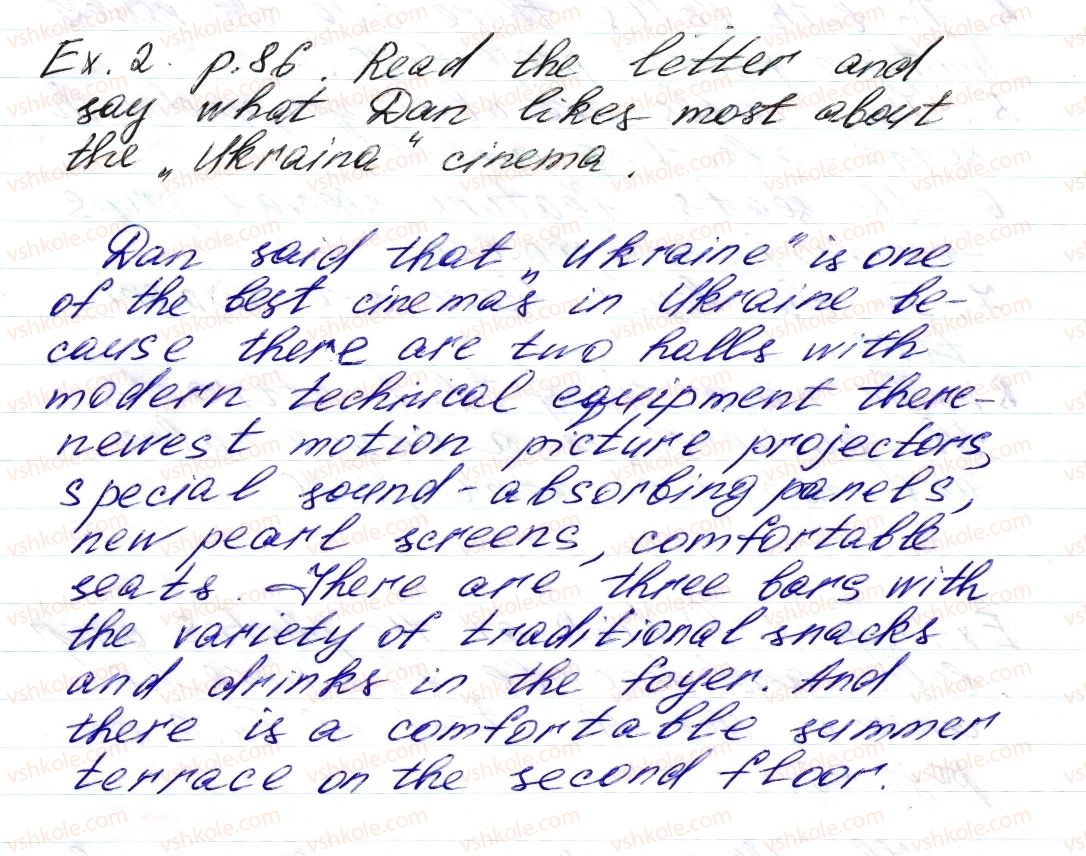 Ex. 2. p. 86. Read the letter and
say what Dan likes most about
the „Ukraina“ cinema.
Dan said that „Ukraine“ is one
of the best cinemas in Ukraine be-
cause there are two halls with
modern technical equipment there-
newest motion picture projectors,
special sound-absorbing panels,
new pearl screens, comfortable
seats. There are three bars with
the variety of traditional snacks
and drinks in the foyer. And
there is a comfortable summer
terrace on the second floor.